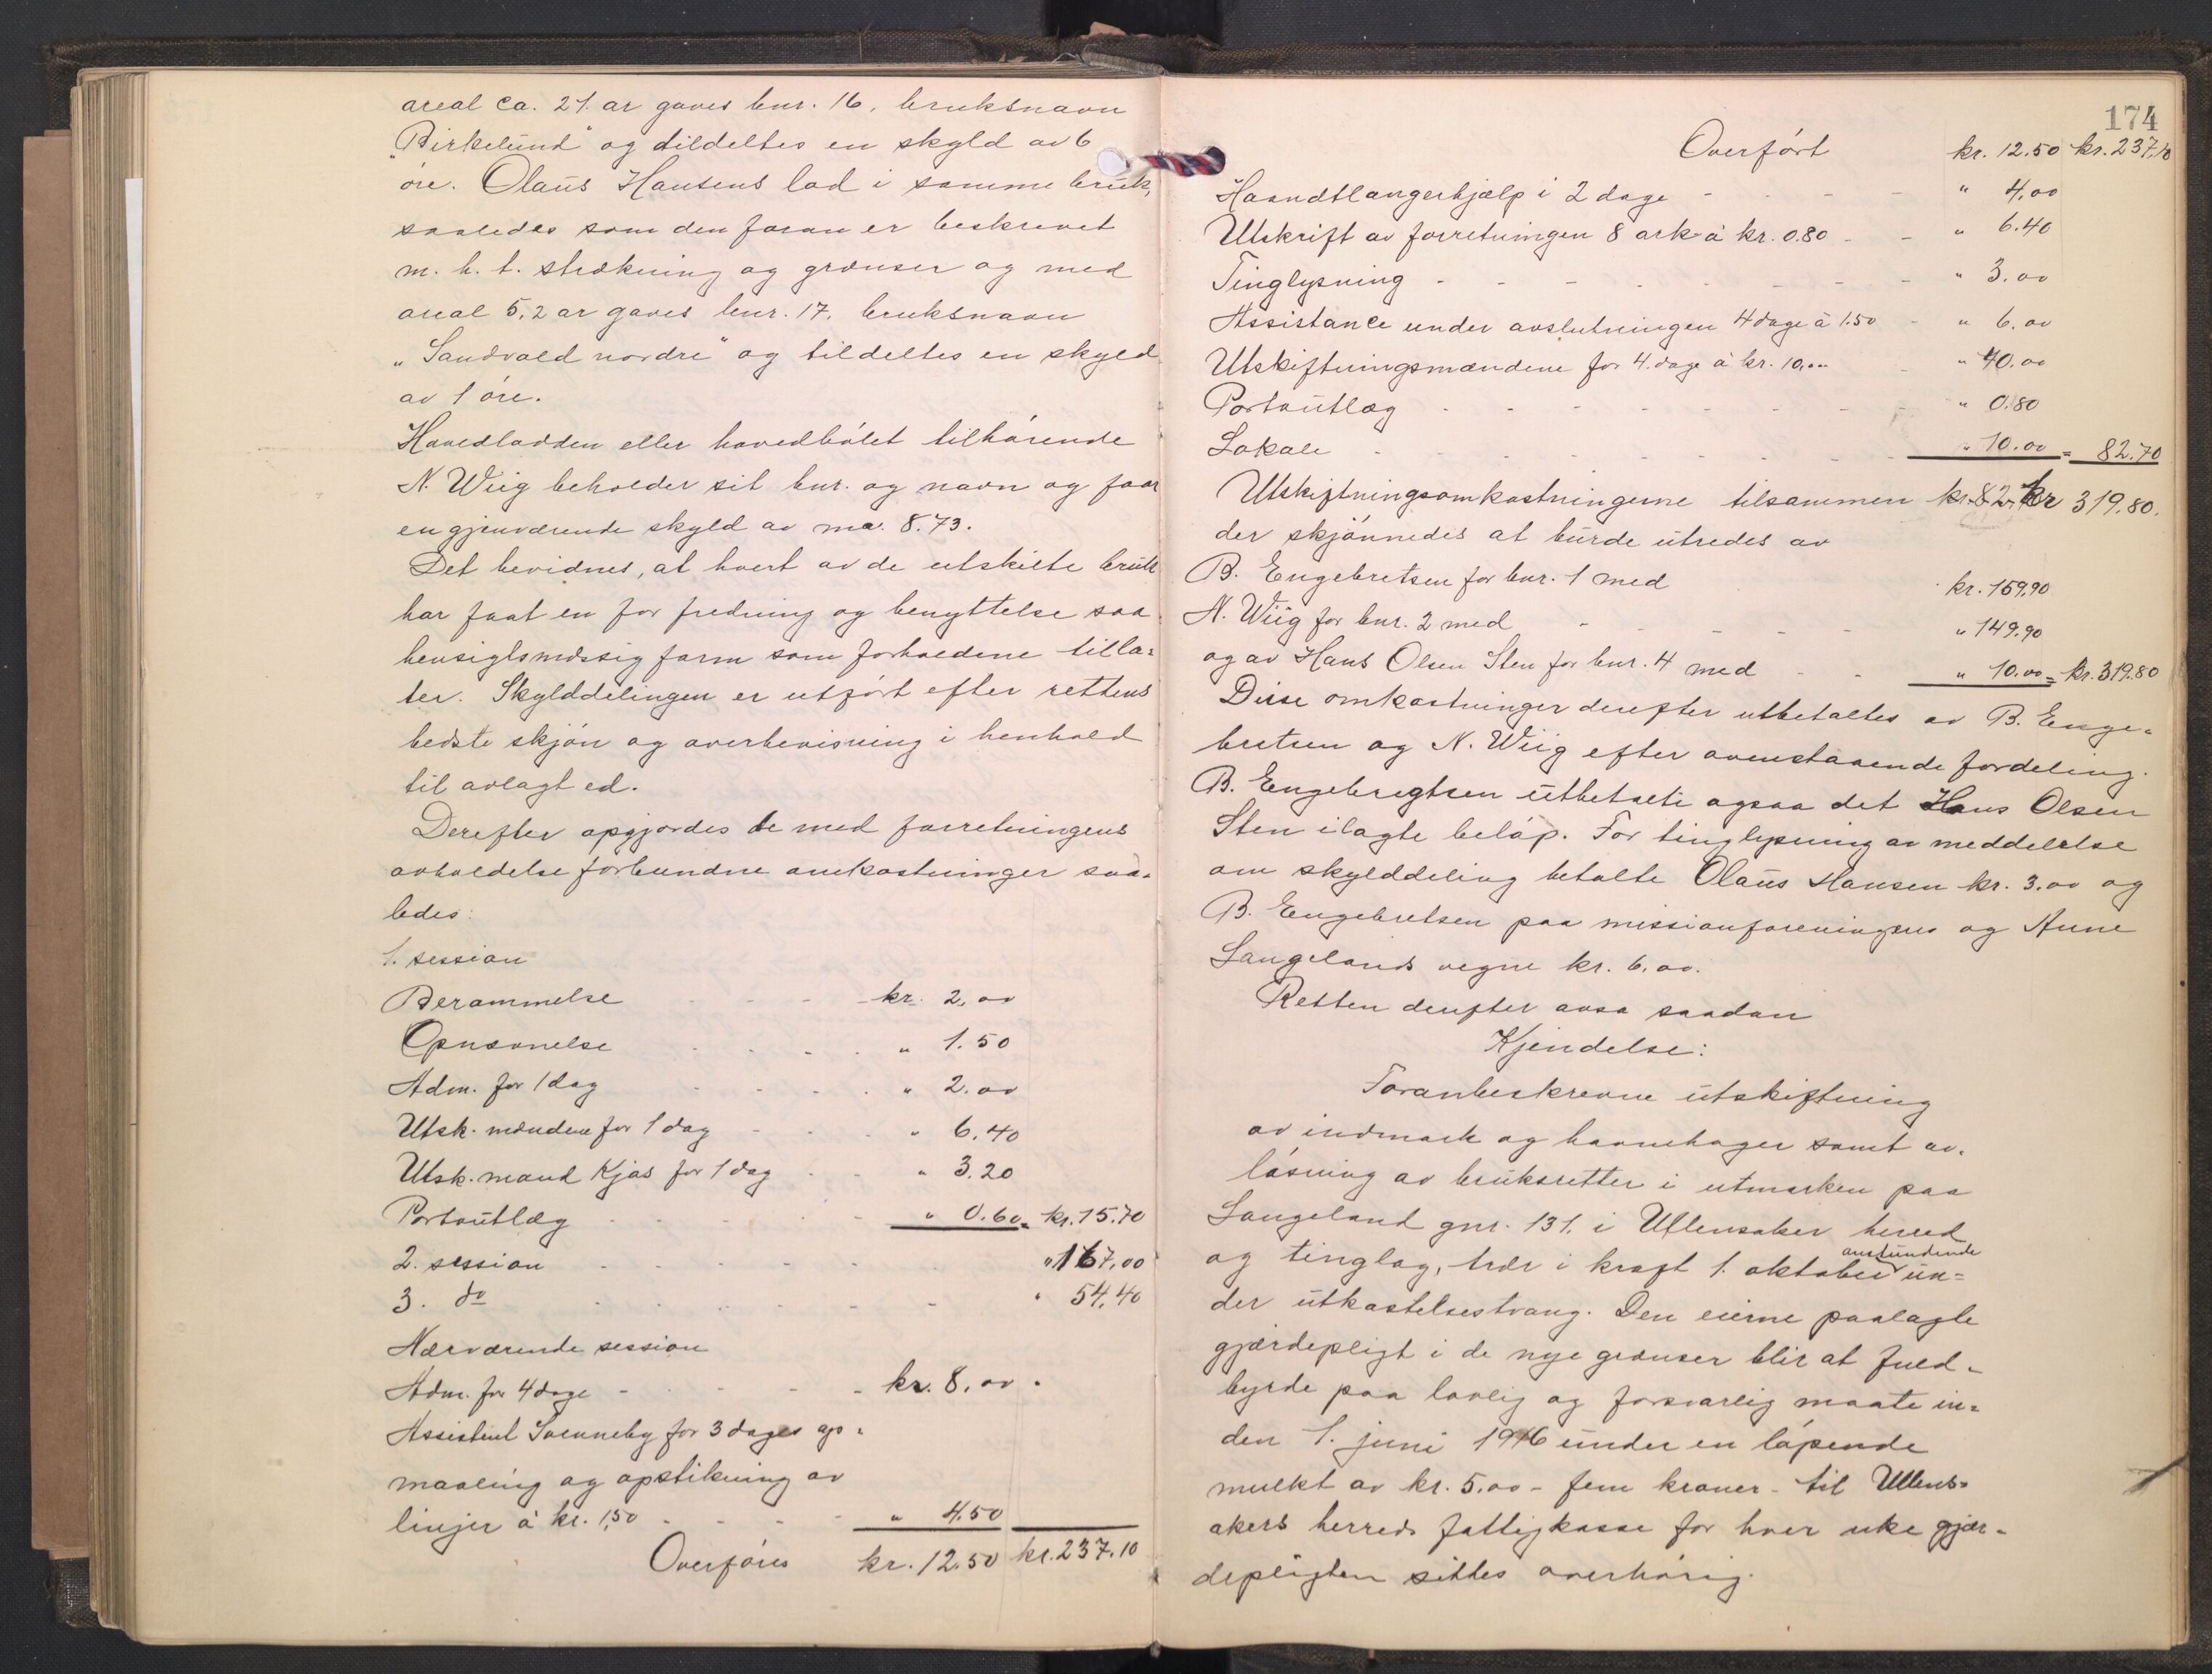 areal ca. 21. ar gaves bnr. 16. bruksnavn
„Birkelund" og tildeltes en skyld av 6
øre. Olaus Hansens lod i samme bruk,
saaledes som den foran er beskrevet
m. h. t. strækning og grænser og med
areal 5,2 ar gaves bnr. 17. bruksnavn
„Sandvold nordre" og tildeltes en skyld
av 1 øre.
Hovedlodden eller hovedbølet tilhørende
N. Wiig beholder sit bnr. og navn og faar
en gjenværende skyld av mа. 8.73.
Det bevidnes, at hvert av de utskilte bruk
har faat en for fredning og benyttelse saa
hensigtsmæssig form som forholdene tilla=
ter. Skylddelingen er utført efter rettens
bedste skjøn og overbevisning i henhold
til avlagt ed.
Derefter opgjordes de med forretningens
avholdelse forbundne omkostninger saa=
ledes:
1. session
Berammelse - - - - kr. 2.00
Opnævnelse . . . . „ 1.50
Adm. for 1 dag - - - . „ 2.00
Utsk. mændene for 1 dag - - - „ 6.40
Utsk. mand Kjos for 1 dag - - „ 3.20
Portoutlæg - - - - - „ 0.60 = kr. 15.70
2. session - - - - - - „ 167,00
3. do - - - - - - „ 54.40
Nærværende session
Adm. for 4 dage - - - - - kr. 8.00 .
Assistent Svenneby for 3 dages op=
maaling og opstikning av
linjer à kr. 1,50 - - - - „ 4.50
Overføres kr. 12.50 kr. 237.10
174
Overført kr. 12.50 kr. 237,10
Haandtlangerhjælp i 2 dage - - - - „ 4,00
Utskrift av forretningen 8 ark à kr. 0.80 - - „ 6.40
Tinglysning - - - - - - - - „ 3.00
Assistance under avslutningen 4 dage à 1.50 - „ 6.00
Utskiftningsmændene for 4. dage à kr. 10,00 - „ 40.00
Portoutlæg - - - - - - - „ 0.80
Lokale - - - - - - - - „ 10.00 = 82.70
Utskiftningsomkostningerne tilsammen kr. 82. kr 319.80.
der skjønnedes at burde utredes av
B. Engebretsen for bnr. 1 med kr. 159,90
N. Wiig for bnr. 2 med - - - - - „ 149.90
og av Hans Olsen Sten for bnr. 4 med - - „ 10.00 = kr. 319.80
Disse omkostninger derefter utbetaltes av B. Enge=
bretsen og N. Wiig efter ovenstaaende fordeling.
B. Engebregtsen utbetalte ogsaa det Hans Olsen
Sten ilagte beløp. For tinglysning av meddelelse
om skylddeling betalte Olaus Hansen kr. 3.00 og
B. Engebretsen paa missionsforeningens og Anne
Langelands vegne kr. 6.00.
Retten derefter avsa saadan
Kjendelse:
Foranbeskrevne utskiftning
av indmark og havnehager samt av=
løsning av bruksretter i utmarken paa
Langeland gnr. 131. i Ullensaker herred
og tinglag, trær i kraft 1. oktober anstundende un=
der utkastelsestvang. Den eierne paalagte
gjærdepligt i de nye grænser blir at fuld=
byrde paa lovlig og forsvarlig maate in=
den 1. juni 1916 under en løpende
mulkt av kr. 5.00 - fem kroner - til Ullens=
akers herreds fattigkasse for hver uke gjær=
depligten sittes overhørig.